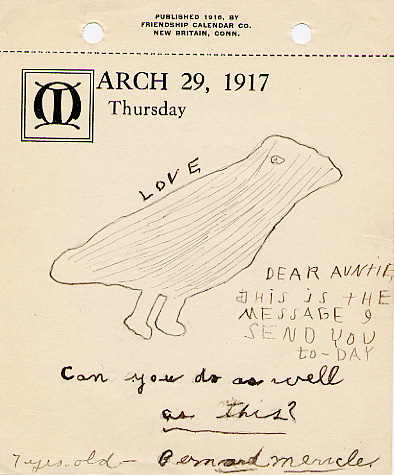 PUBLISHED 1916, BY
FRIENDSHIP CALENDAR CO.
NEW BRITAIN, CONN.
MARCH 29, 1917
Thursday
LOVE
DEAR AUNTIE
THIS IS THE
MESSAGE I
SEND YOU
to-DAY
Can you do as well
as this?
7 yrs. old - Bernard Mericle